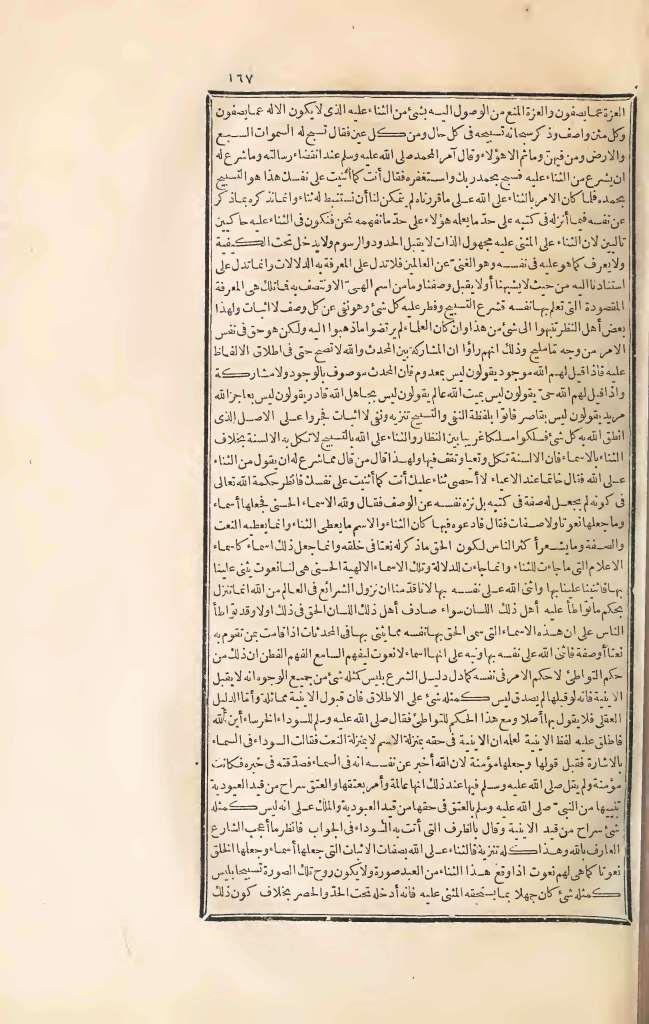 ١٦٧
العزة عما يصفون والعزة المنع من الوصول اليه بشئ من الثناء عليه الذى لا يكون الا له عما يصفون
وكل مثن واصف وذكر سبحانه تسبيحه فى كل حال ومن كل عين فقال تسبح له السموات السبع
والارض ومن فيهن وما ثم الا هؤلاء وقال آمرا لمحمد صلى الله عليه وسلم عند انقضاء رسالته وما شرع له
ان يشرع من الثناء عليه فسبح بحمد ربك واستغفره فقال أنت كما أثنيت على نفسك هذا هو التسبيح
بحمده فلما كان الامر بالثناء على الله على ما قررناه لم يتمكن لنا أن نستنبط له ثناء وانما نذكره بما ذكر
عن نفسه فيما أنزله فى كتبه على حد ما يعلمه هؤلاء على حد ما نفهمه نحن فنكون فى الثناء عليه حاكين
تالين لان الثناء على المثنى عليه مجهول الذات لا يقبل الحدود والرسوم ولا يدخل تحت الكيفية
ولا يعرف كما هو عليه فى نفسه وهو الغنى عن العالمين فلا تدل على المعرفة به الدلالات وانما تدل على
استنادنا اليه من حيث لا يشبهنا أو لا يقبل وصفنا وما من اسم الهى الا ونتصف به فما تلك هى المعرفة
المقصودة التى تعلم بها نفسه فشرع التسبيح وفطر عليه كل شئ وهو نفى عن كل وصف لا اثبات ولهذا
بعض أهل النظر تنبهوا الى شئ من هذا وان كان العلماء لم يرتضوا ما ذهبوا اليه ولكن هو حق فى نفس
الامر من وجه ما مليح وذلك انهم رأوا ان المشاركة بين المحدث والله لا تصح حتى فى اطلاق الالفاظ
عليه فاذا قيل لهم الله موجود يقولون ليس بمعدوم فان المحدث موصوف بالوجود ولا مشاركة
واذا قيل لهم الله حى يقولون ليس بميت الله عالم يقولون ليس بجاهل الله قادر يقولون ليس بعاجز الله
مريد يقولون ليس بقاصر فاتوا بلفظة النفى والتسبيح تنزيه ونفى لا اثبات فجروا على الاصل الذى
انطق الله به كل شئ فسلكوا مسلكا غريبا بين النظار والثناء على الله بالتسبيح لا تكل به الالسنة بخلاف
الثناء بالاسماء فان الالسنة تكل وتعيا وتقف فيها ولهذا قال من قال مما شرع له ان يقول من الثناء
على الله فقال خاتما عند الاعياء لا أحصى ثناء عليك أنت كما أثنيت على نفسك فانظر حكمة الله تعالى
فى كونه لم يجعل له صفة فى كتبه بل نزه نفسه عن الوصف فقال ولله الاسماء الحسنى فجعلها أسماء
وما جعلها نعوتا ولا صفات فقال فادعوه فيها كان الثناء والاسم ما يعطى الثناء وانما يعطيه النعت
والصفة وما يشعر أكثر الناس لكون الحق ما ذكر له نعتا فى خلقه وانما جعل ذلك اسماء كاسماء
الاعلام التى ما جاءت للثناء وانما جاءت للدلالة وتلك الاسماء الالهية الحسنى هى لنا نعوت يثنى علينا
بها فاثنينا علينا بها واثنى الله على نفسه بها لانا قدمنا ان نزول الشرائع فى العالم من الله انما تنزل
بحكم ما تواطأ عليه أهل ذلك اللسان سواء صادف أهل ذلك اللسان الحق فى ذلك اولا وقد تواطأ
الناس على ان هذه الاسماء التى سمى الحق بها نفسه مما يثنى بها فى المحدثات اذا قامت بمن تقوم به
نعتا أو صفة فاثنى الله على نفسه بها ونبه على انها اسماء لا نعوت ليفهم السامع الفهم الفطن ان ذلك من
حكم التواطئ لا حكم الامر فى نفسه كما دل دليل الشرع بليس كمثله شئ من جميع الوجوه انه لا يقبل
الاينية فانه لو قبلها لم يصدق ليس كمثله شئ على الاطلاق فان قبول الاينية مماثلة وأما الدليل
العقلى فلا يقول بها أصلا ومع هذا الحكم للتواطئ فقال صلى الله عليه وسلم للسوداء الخرساء أين الله
فاطلق عليه لفظ الاينية لعلمه ان الاينية فى حقه بمنزلة الاسم لا بمنزلة النعت فقالت السوداء فى السماء
بالاشارة فقبل قولها وجعلها مؤمنة لان الله أخبر عن نفسه انه فى السماء فصدقته فى خبره فكانت
مؤمنة ولم يقل صلى الله عليه وسلم فيها عند ذلك انها عالمة وأمر بعتقها والعتق سراح من قيد العبودية
تنبيها من النبى صلى الله عليه وسلم بالعتق فى حقها من قيد العبودية والملك على انه ليس كمثله
شئ سراح من قيد الاينية وقال بالظرف التى أتت به السوداء فى الجواب فانظر ما أعجب الشارع
العارف بالله وهذا كله تنزيه فالثناء على الله بصفات الاثبات التى جعلها أسماء وجعلها الخلق
نعوتا كما هى لهم نعوت اذا وقع هذا الثناء من العبد صورة ولا يكون روح تلك الصورة تسبيحا بليس
كمثله شئ كان جهلا بما يستحقه المثنى عليه فانه أدخله تحت الحد والحصر بخلاف كون ذلك